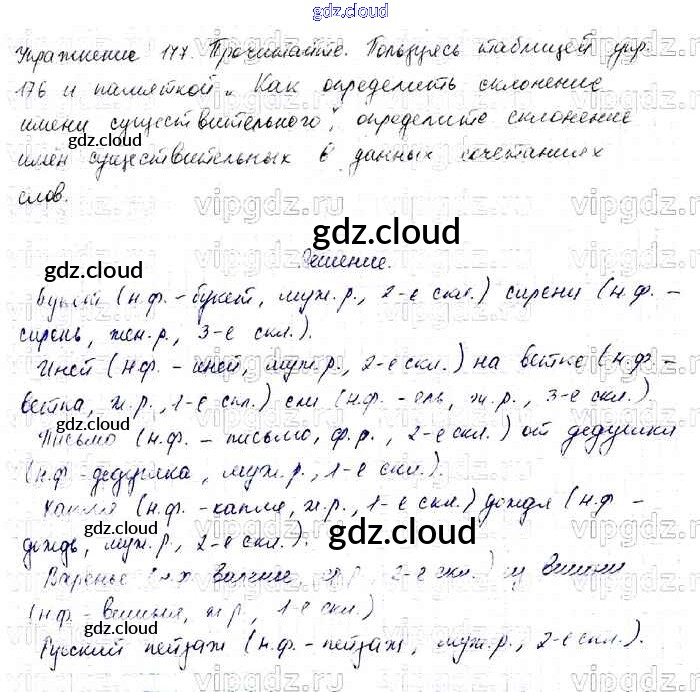 gdz.cloud
Упражнение 177. Прочитайте. Пользуясь таблицей упр.
176 и памяткой „Как определить склонение
имени существительного", определите склонение
имён существительных в данных сочетаниях
слов.
gdz.cloud
gdz.cloud
gdz.cloud
Решение.
Букет (н.ф. - букет, муж.р., 2-е скл.) сирени (н.ф. -
сирень, жен.р., 3-е скл.).
Иней (н.ф. - иней, муж.р., 2-е скл.) на ветке (н.ф. -
ветка, ж.р., 1-е скл.) ели (н.ф. - ель, ж.р., 3-е скл.).
gdz.cloud
Письмо (н.ф. - письмо, ср.р., 2-е скл.) от дедушки
(н.ф. - дедушка, муж.р., 1-е скл.).
Капля (н.ф. - капля, ж.р., 1-е скл.) дождя (н.ф. -
gdz.cloud
gdz.cloud
дождь, муж.р., 2-е скл.).
Варенье 2-е скл.) из вишни
(н.ф. - вишня, ж.р., 1-е скл.)
gdz.cloud
Русский пейзаж (н.ф. - пейзаж, муж.р., 2-е скл.).